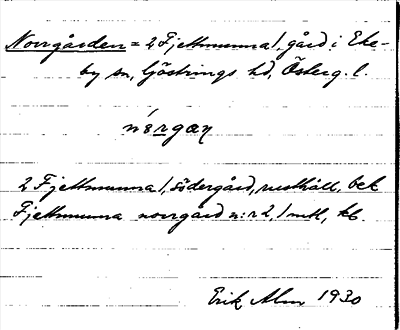 Norrgården = 2 Fjettmunna 1, gård i Eke-
by sn, Göstrings hd, Österg. l.
nǿrgaƞ
2 Fjettmunna 1, södergård, rusthåll, bet
Fjettmunna norrgård n:r 2, 1 mtl, kr.
Erik Alm 1930